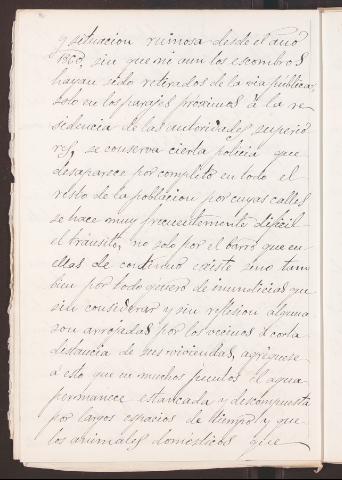 y situacion ruinosa desde el año
1860, sin que ni aun los escombros
hayan sido retirados de la via pública,
solo en los parajes proximos á la re-
sidencia de las autoridades superio
res, se conserva cierta policia que
desaparece por completo en todo el
resto de la poblacion por cuyas calles
se hace muy frecuentemente dificil
el tránsito, no solo por el barro que en
ellas de continuo existe sino tam
bien por todo género de inmundicias que
sin considerar y sin reflesion alguna
son arrojadas por los vecinos á corta
distancia de sus viviendas, agreguese
á esto que en muchos puntos el agua
permanece estancada y descompuesta
por largos espacios de tiempo, y que
los animales domésticos que